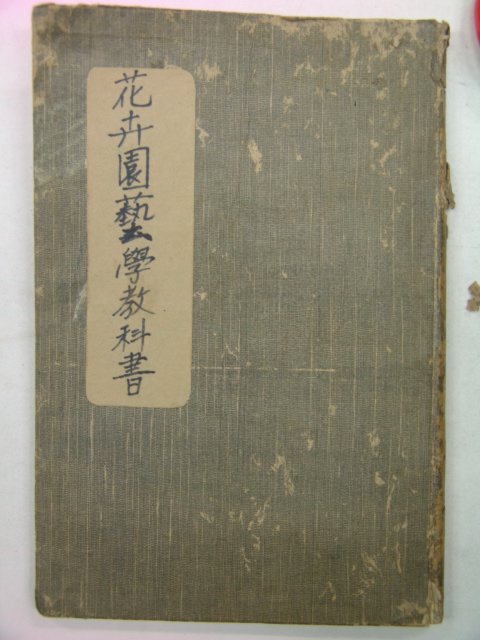 花卉園藝學教科書